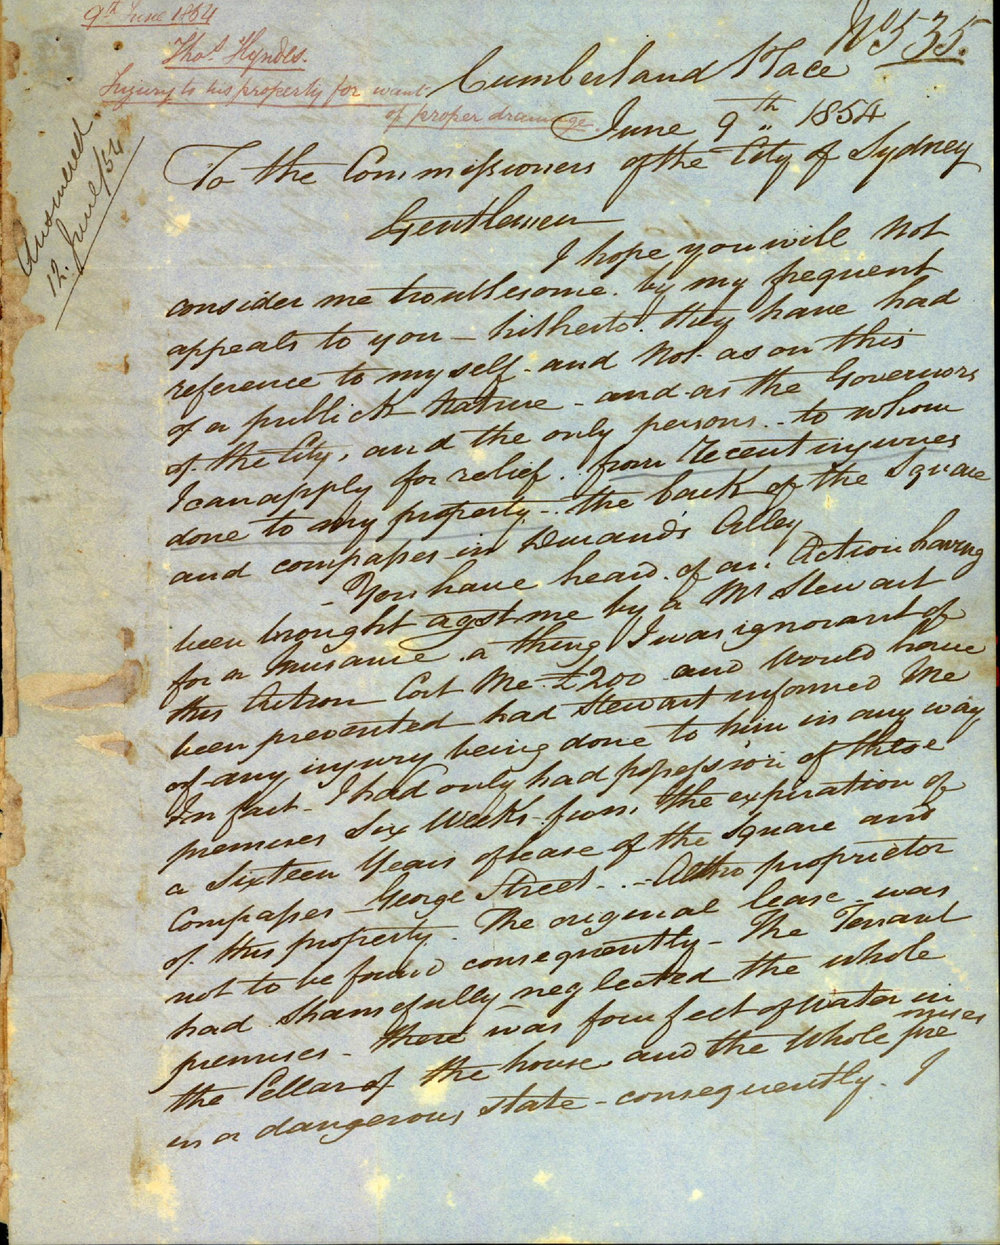 9th June 1854
Thos Hyndes.
Injury to his property for want
of proper drainage.
No 535.
Answered
12. June/54
Cumberland Place
June 9th 1854
To the Commissioners of the City of Sydney
Gentlemen
I hope you will not
consider me troublesome by my frequent
appeals to you – hitherto they have had
reference to myself and not as on this
of a publick nature – and as the Governors
of the City, and the only persons – to whom
I can apply for relief. from recent injuries
done to my property – the back of the Square
and compasses in Durands Alley
– You have heard of an Action having
been brought agst me by a Mr Stewart
for a nusance a thing I was ignorant of
this Action Cost Me £200 and Would have
been prevented had Stewart informed Me
of any injury being done to him in any way
In fact – I had only had possession of these
premises Six Weeks from the expiration of
a Sixteen Years of lease of the Square and
Compasses – George Street – Altho proprietor
of this property. The original lease was
not to be found consequently – The Tenant
had shamefully neglected the whole
premises – there was four feet of water in
the Cellar of the house and the Whole premises
in a dangerous state – consequently. I